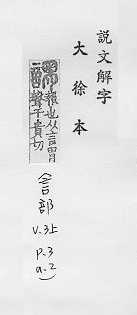 說文解字
大徐本
報也从言胃
聲于貴切
(言部
v.3上
p.3
a.2)